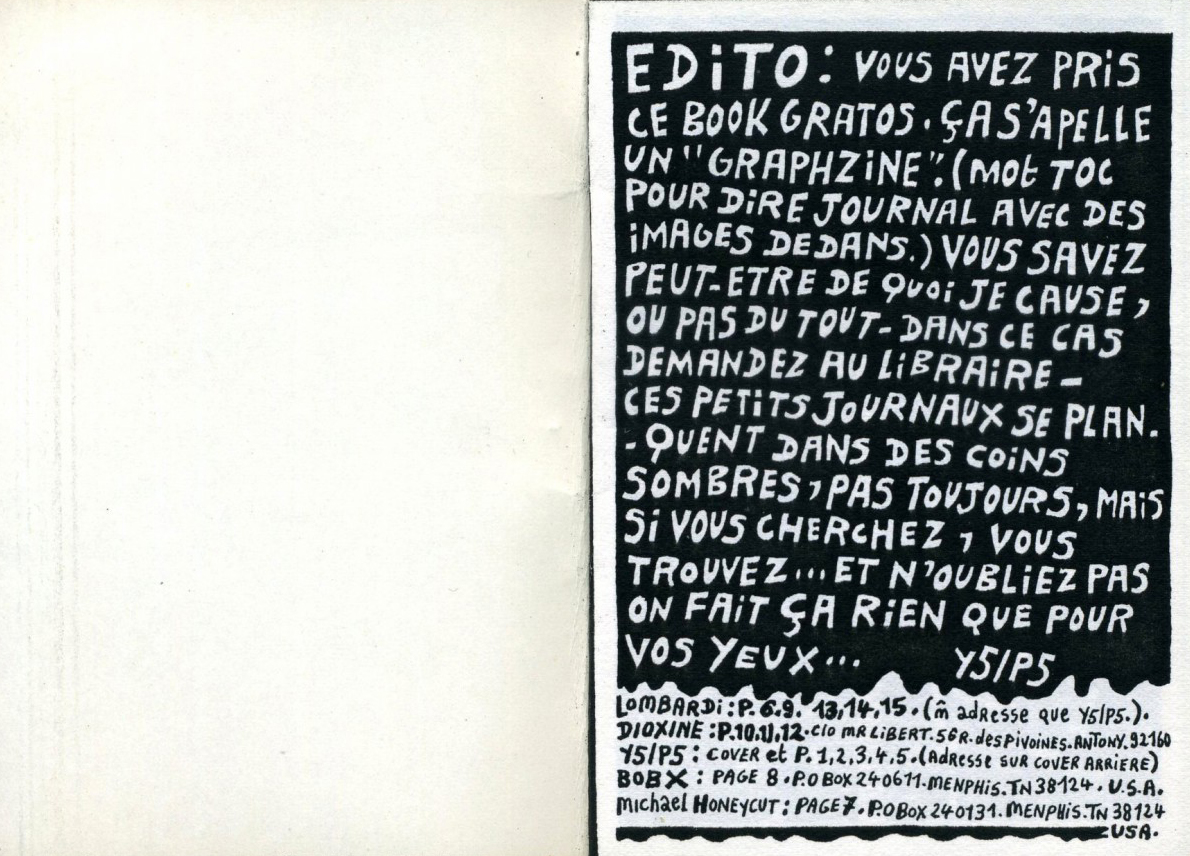 EDiTO: VOUS AVEZ PRiS
CE BOOK GRATOS. ÇA S'APELLE
UN "GRAPHZiNE". (MOt TOC
POUR DiRE JOURNAL AVEC DES
iMAGES DEDANS.) VOUS SAVEZ
PEUT-ETRE DE QUOi JE CAUSE,
OU PAS DU TOUT- DANS CE CAS
DEMANDEZ AU LiBRAiRE-
CES PETiTS JOURNAUX SE PLAN.
-QUENT DANS DES COiNS
SOMBRES, PAS TOUJOURS, MAiS
Si VOUS CHERCHEZ, VOUS
TROUVEZ...ET N'OUBLiEZ PAS
ON FAiT ÇA RiEN QUE POUR
VOS YEUX... Y5/P5
LOMBARDi: P. 6.9. 13,14,15. (m̂ adResse que Y5/P5.).
DIOXINE: P.10.11,12. C/O MR LiBERT. 56R. des PiVOiNES. ANTONY. 92160
Y5/P5: COVER et P. 1,2,3,4,5. (AdResse SUR COVER ARRIERE)
BOBX: PAGE 8. P.O BOX 240611. MENPHiS. TN 38124. U.S.A.
Michael HONEYCUT: PAGE 7. P.O BOX 240131. MENPHiS. TN 38124
USA.